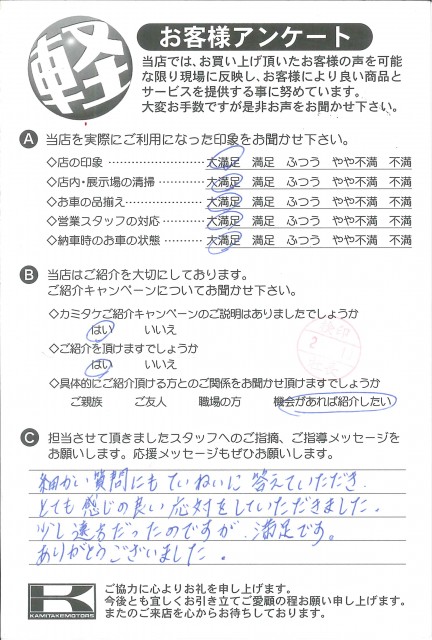 軽
お客様アンケート
当店では、お買い上げ頂いたお客様の声を可能
な限り現場に反映し、お客様により良い商品と
サービスを提供する事に努めています。
大変お手数ですが是非お声をお聞かせ下さい。
A 当店を実際にご利用になった印象をお聞かせ下さい。
◇店の印象 ………………… 大満足 満足 ふつう やや不満 不満
◇店内・展示場の清掃………… 大満足 満足 ふつう やや不満 不満
◇お車の品揃え……………… 大満足 満足 ふつう やや不満 不満
◇営業スタッフの対応………… 大満足 満足 ふつう やや不満 不満
◇納車時のお車の状態………… 大満足 満足 ふつう やや不満 不満
B 当店はご紹介を大切にしております。
ご紹介キャンペーンについてお聞かせ下さい。
◇カミタケご紹介キャンペーンのご説明はありましたでしょうか
はい いいえ
◇ご紹介を頂けますでしょうか
はい いいえ
◇具体的にご紹介頂ける方とのご関係をお聞かせ頂けますでしょうか
ご親族 ご友人 職場の方 機会があれば紹介したい
C 担当させて頂きましたスタッフへのご指摘、ご指導メッセージを
お願いします。応援メッセージもぜひお願いします。
細かい質問にもていねいに答えていただき、
とても感じの良い応対をしていただきました。
少し遠方だったのですが、満足です。
ありがとうございました。
K
KAMITAKEMOTORS
ご協力に心よりお礼を申し上げます。
今後とも宜しくお引き立てご愛顧の程お願い申し上げます。
またのご来店を心からお待ちしております。